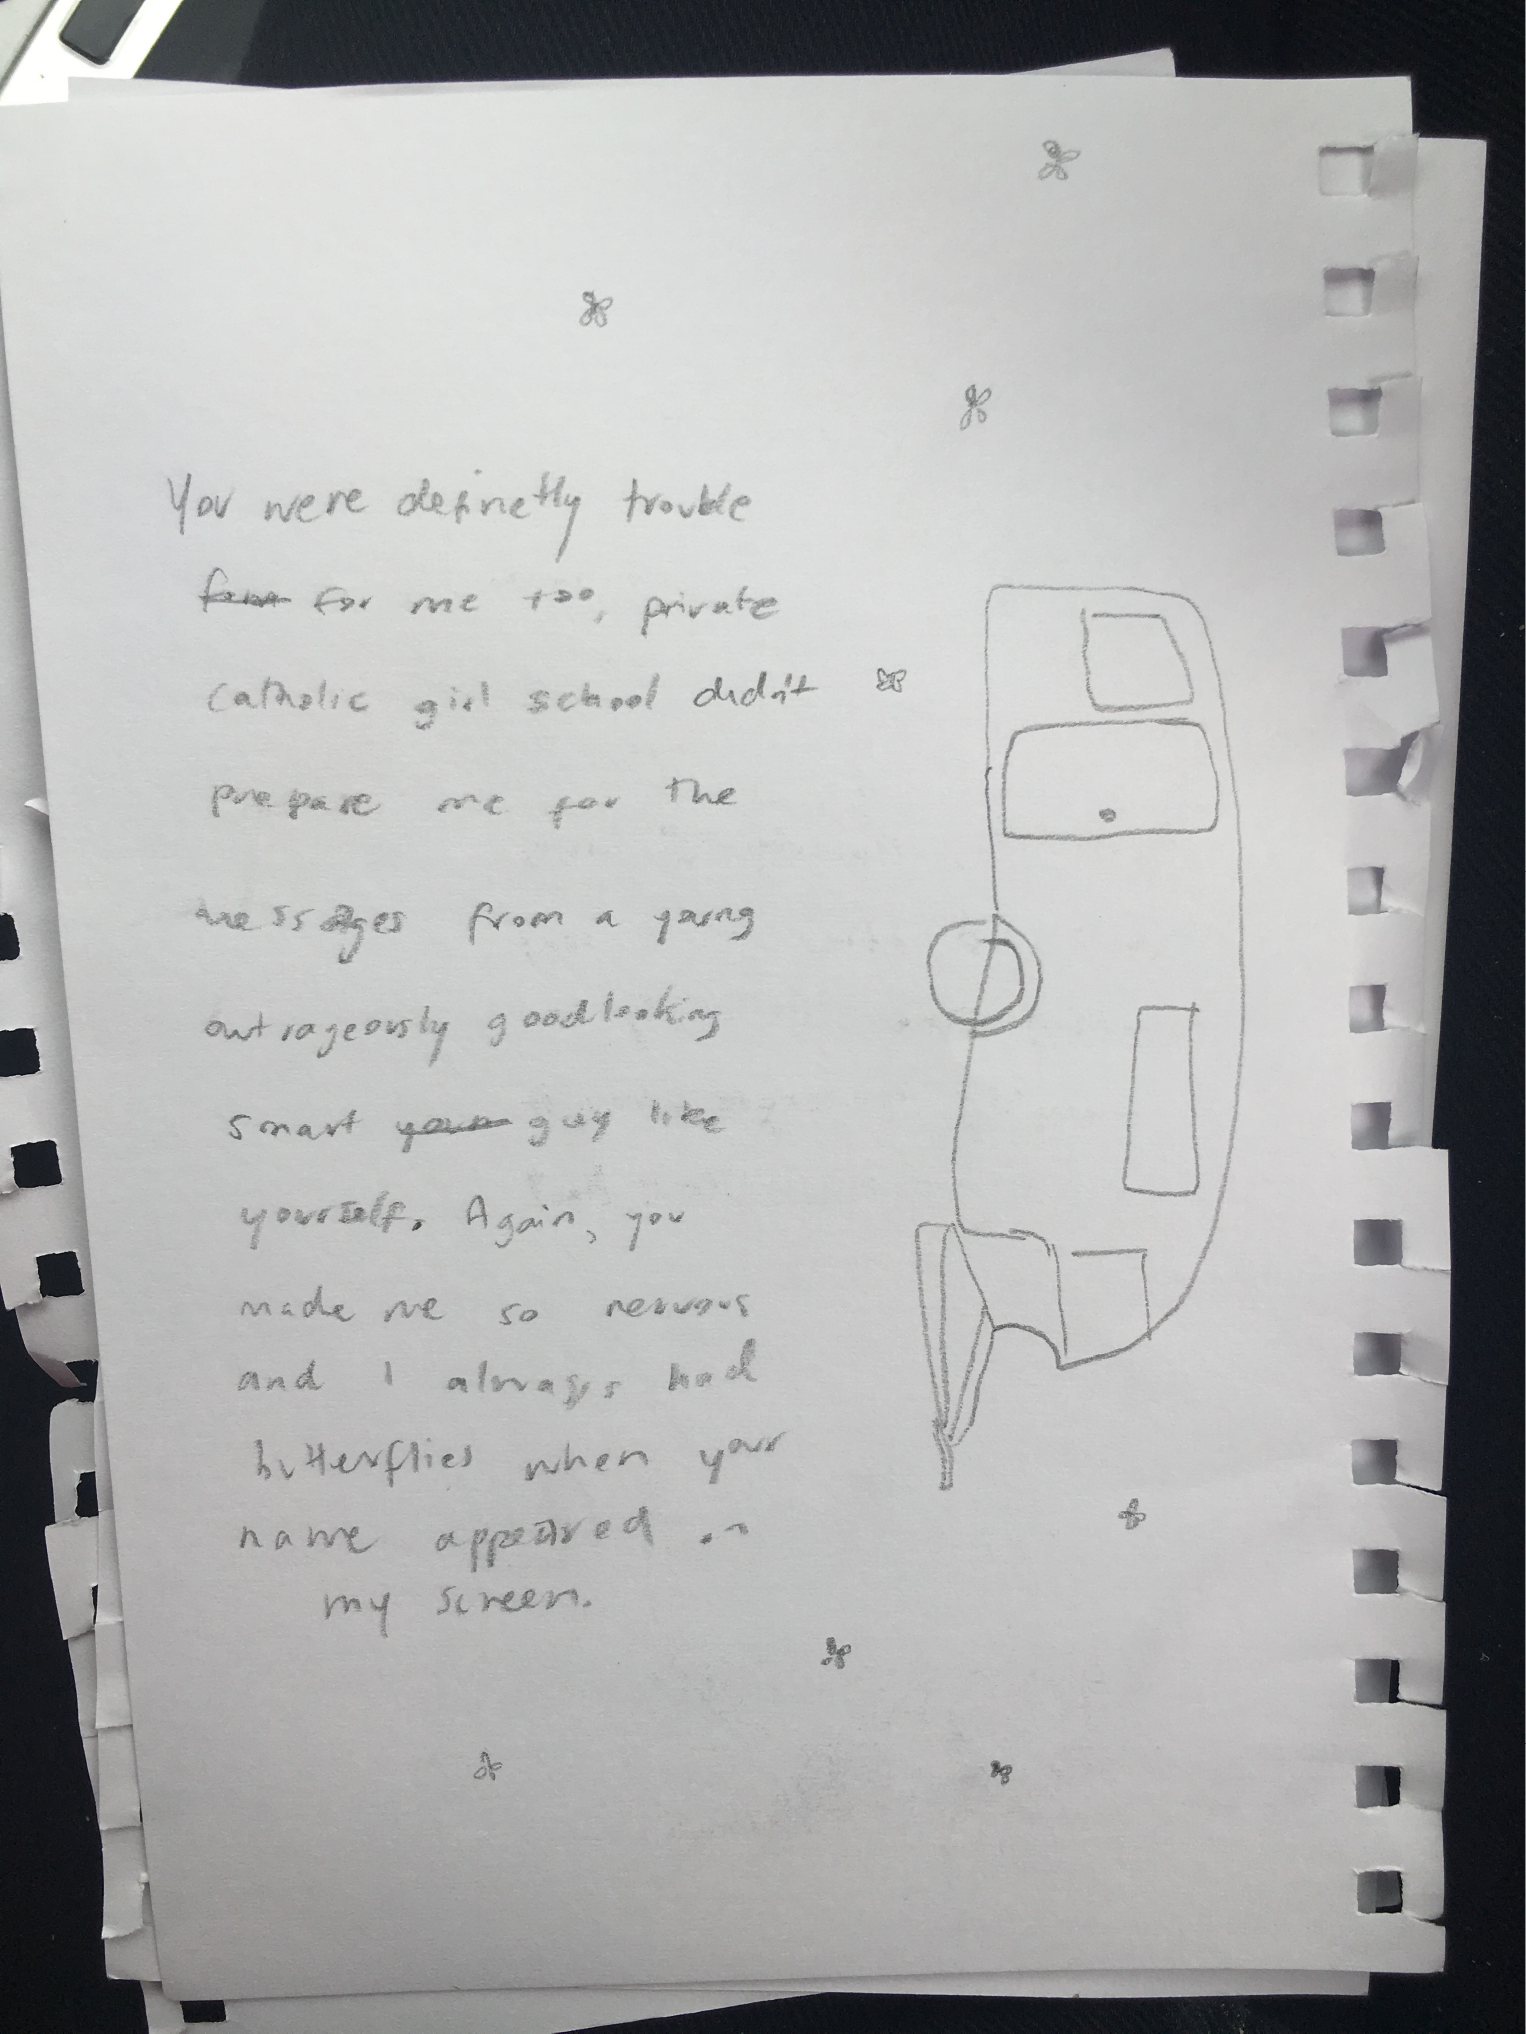 You were definetly trouble
for me too, private
catholic girl school didn't
prepare me for the
messages from a young
outrageously goodlooking
smart guy like
yourself. Again, you
made me so nervous
and I always had
butterflies when your
name appeared on
my screen.